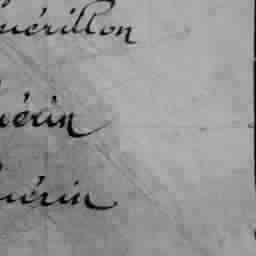 uérillon
uérin
uérin